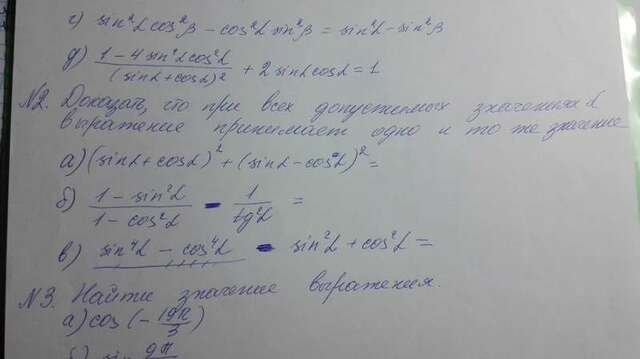 г) sin²α cos²β − cos²α sin²β = sin²α − sin²β
д) (1 − 4 sin²α cos²α)/(sinα + cosα)² + 2 sinα cosα = 1
№2. Доказать, что при всех допустимых значениях α
выражение принимает одно и то же значение
а) (sinα + cosα)² + (sinα − cosα)² =
б) (1 − sin²α)/(1 − cos²α) − 1/tg²α =
в) sin⁴α − cos⁴α − sin²α + cos²α =
№3. Найти значение выражения.
а) cos (− 19π/3)
б) sin 9π